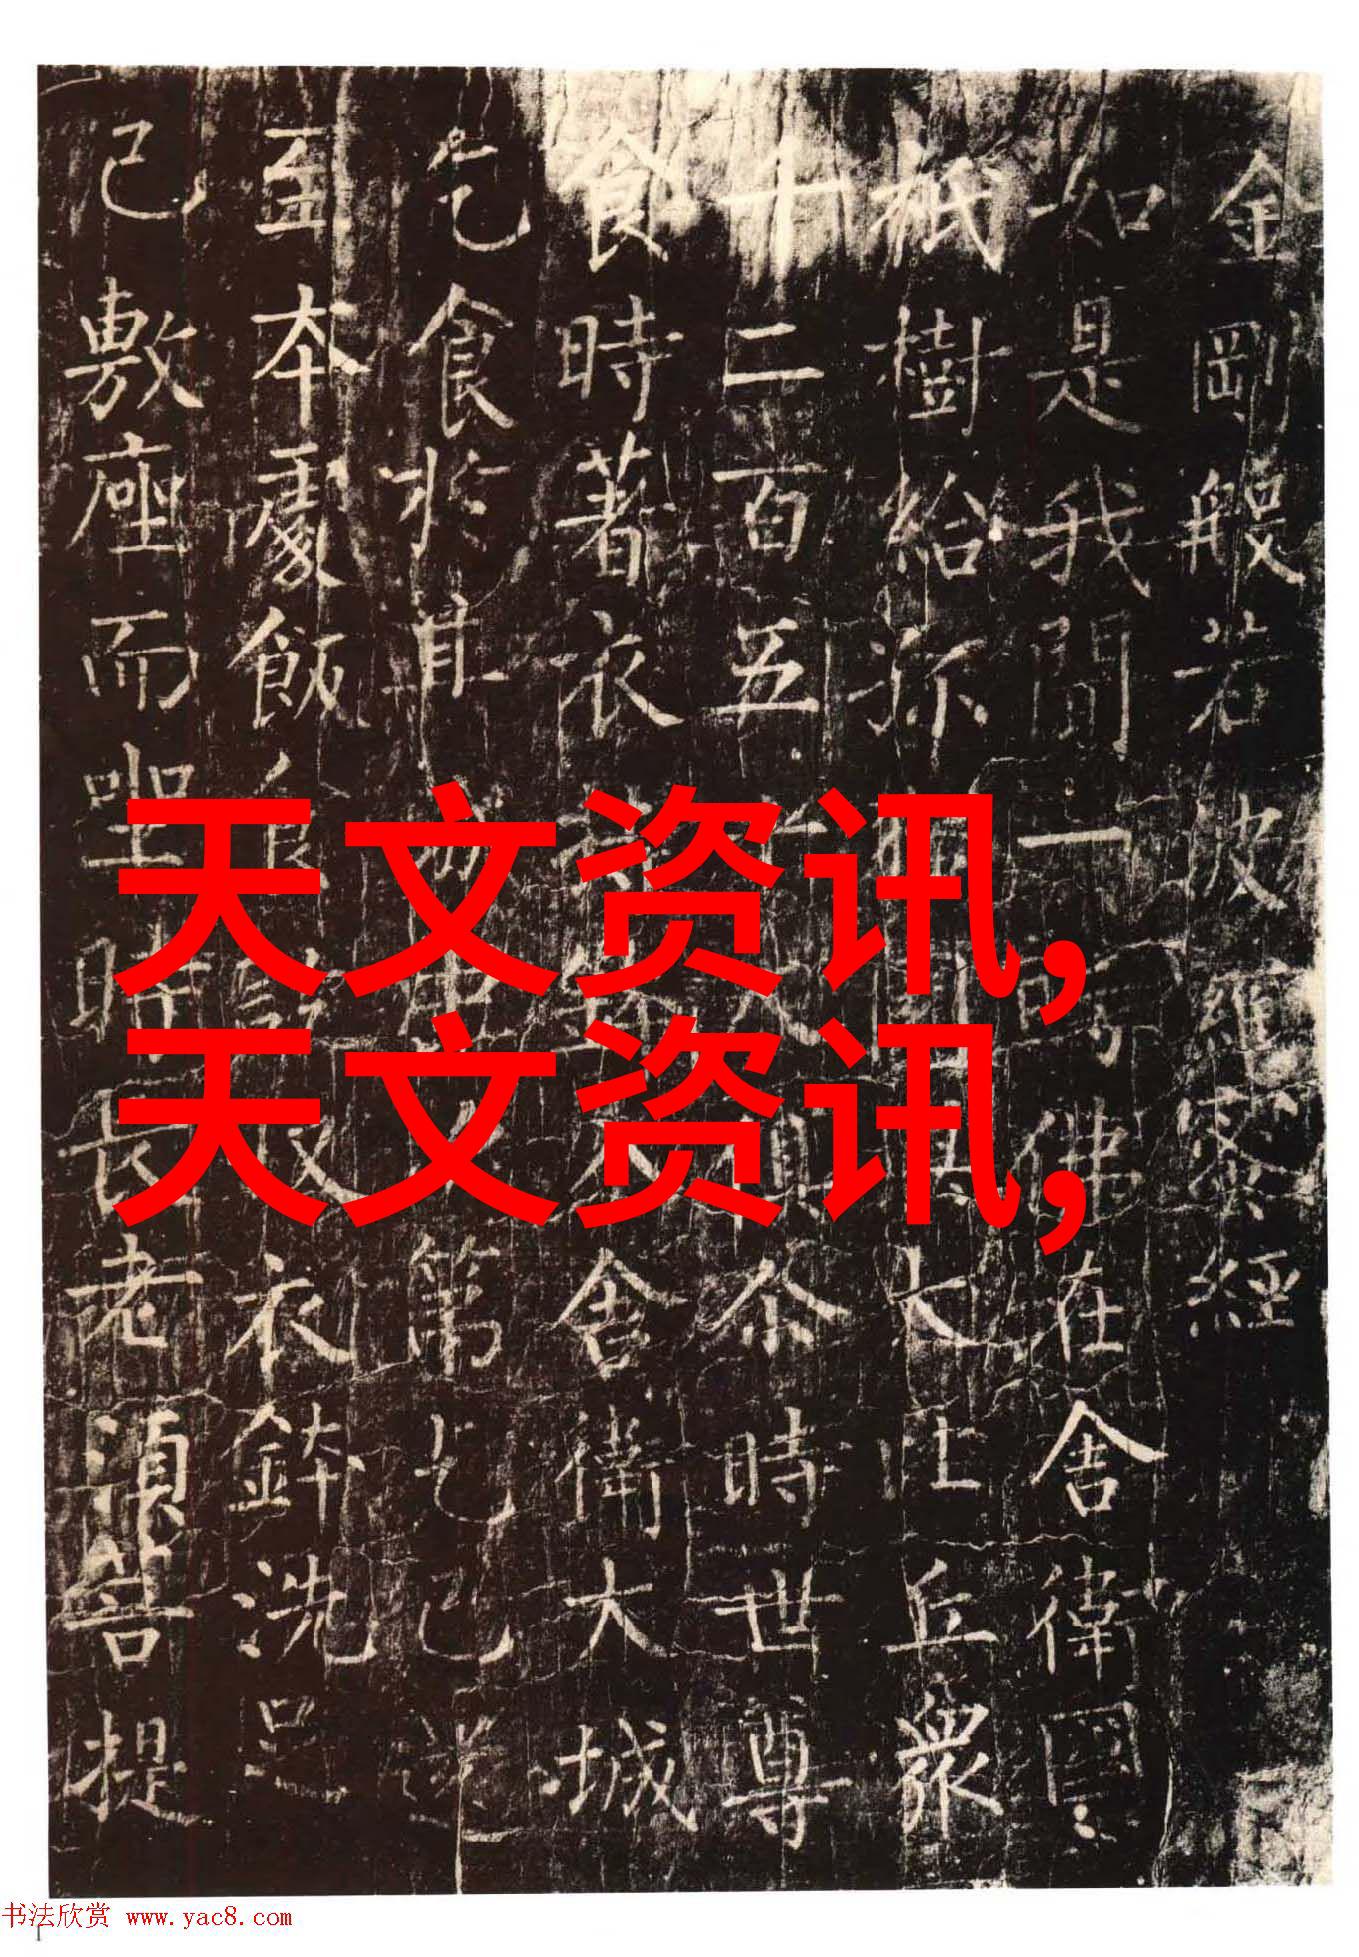 金剛般若波羅蜜經
如是我聞一時佛在舍衛國
祇樹給孤大比丘眾
十二百五十人俱尒時世尊
食時著衣入舍衛大城
乞食於其城中第乞已還
至本處飯食訖收衣鉢洗足
已敷座而坐時長老須菩提
天文资讯,
天文资讯,
书法欣赏 www.yac8.com